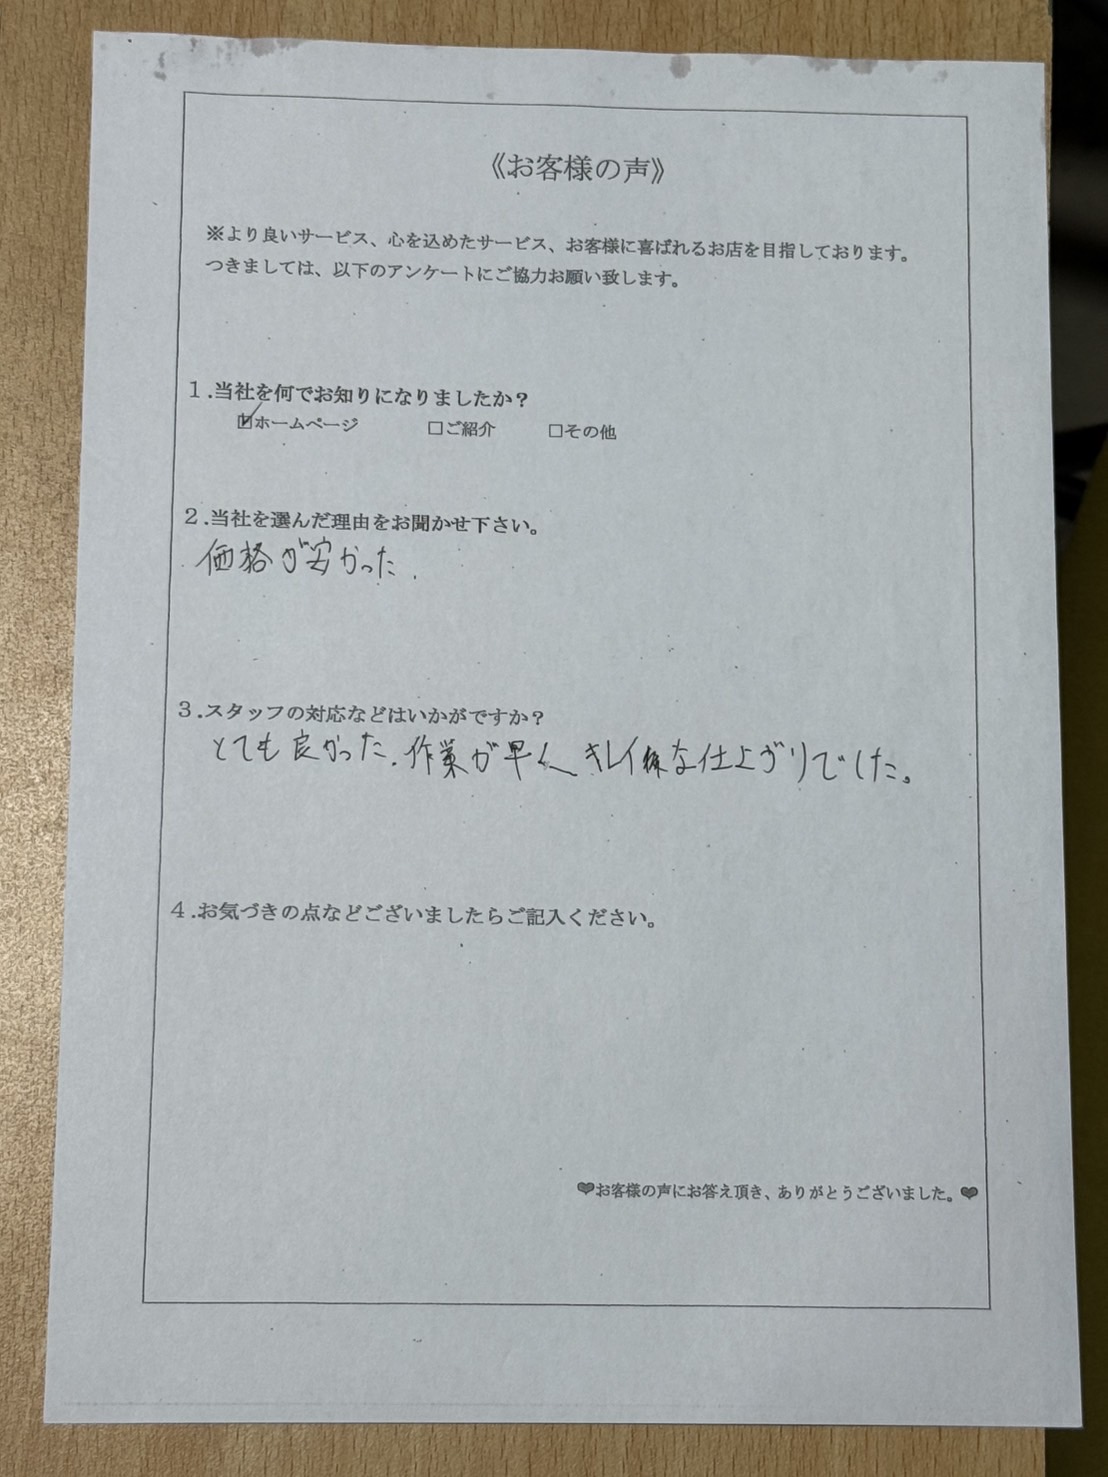 《お客様の声》
※より良いサービス、心を込めたサービス、お客様に喜ばれるお店を目指しております。
つきましては、以下のアンケートにご協力お願い致します。
1.当社を何でお知りになりましたか？
☑ホームページ □ご紹介 □その他
2.当社を選んだ理由をお聞かせ下さい。
価格が安かった.
3.スタッフの対応などはいかがですか？
とても良かった.作業が早くキレイ様な仕上がりでした。
4.お気づきの点などございましたらご記入ください。
❤お客様の声にお答え頂き、ありがとうございました。❤